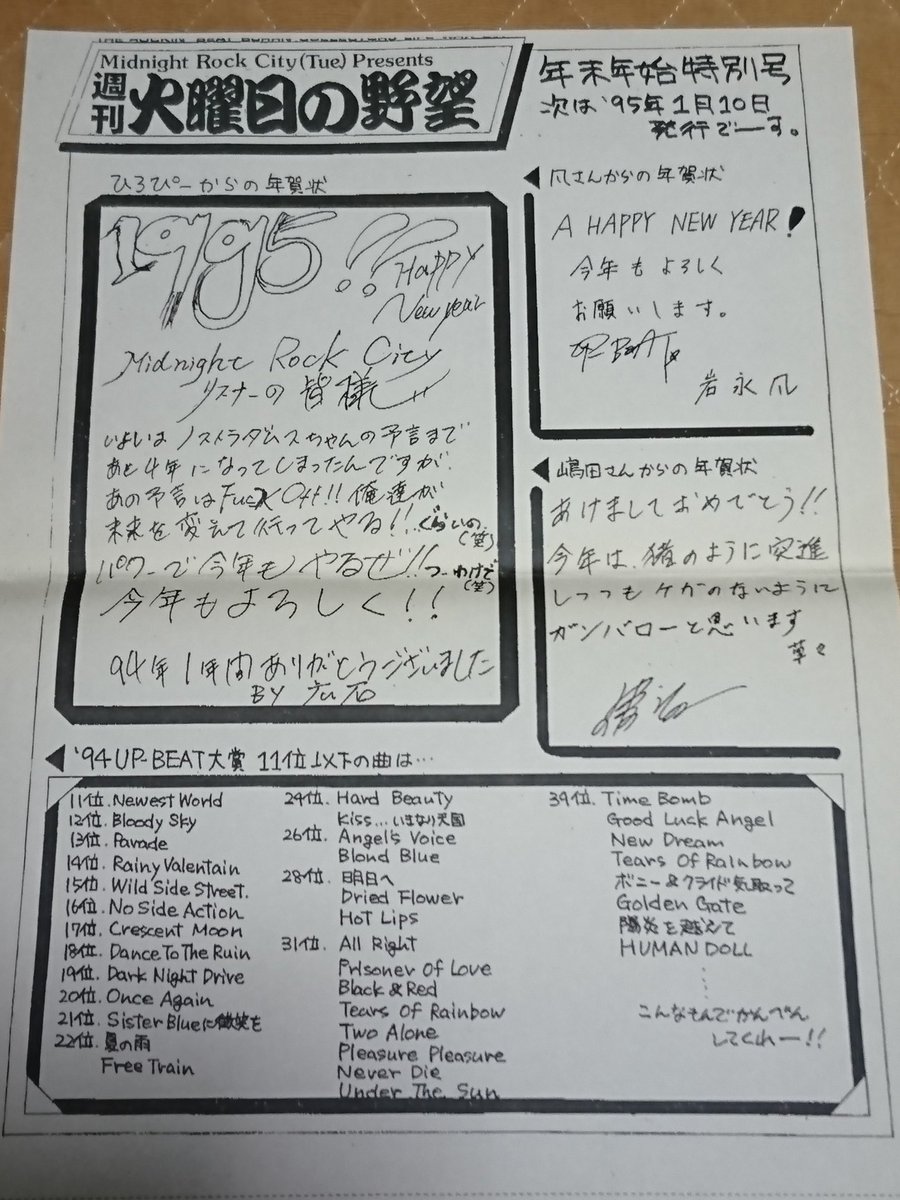 Midnight Rock City (Tue) Presents
週刊 火曜日の野望
年末年始特別号
次は'95年1月10日
発行でーす。
ひろぴーからの年賀状
1995 ??
Happy
New year
Midnight Rock City
リスナーの皆様
いよいよノストラダムスちゃんの予言まで
あと4年になってしまったんですが、
あの予言はFuck Off!! 俺達が
未来を変えて行ってやる!! ぐらいの(笑)
パワーで今年もやるぜ!! つーわけで(笑)
今年もよろしく!!
94年1年間ありがとうございました
BY
◀凡さんからの年賀状
A HAPPY NEW YEAR!
今年もよろしく
お願いします。
UP-BEAT
岩永凡
◀嶋田さんからの年賀状
あけましておめでとう!!
今年は、猪のように突進
しつつもケガのないように
ガンバローと思います
草々
◀'94 UP-BEAT大賞 11位以下の曲は…
11位. Newest World
12位. Bloody Sky
13位. Parade
14位. Rainy Valentain
15位. Wild Side Street.
16位. No Side Action
17位. Crescent Moon
18位. Dance To The Ruin
19位. Dark Night Drive
20位. Once Again
21位. Sister Blueに微笑を
22位. 夏の雨
Free Train
24位. Hard Beauty
Kiss...いきなり天国
26位. Angel's Voice
Blond Blue
28位. 明日へ
Dried Flower
Hot Lips
31位. All Right
Prisoner Of Love
Black & Red
Tears Of Rainbow
Two Alone
Pleasure Pleasure
Never Die
Under The Sun
39位. Time Bomb
Good Luck Angel
New Dream
Tears Of Rainbow
ボニー&クライド気取って
Golden Gate
陽炎を越えて
HUMAN DOLL
こんなもんでかんべん
してくれー!!